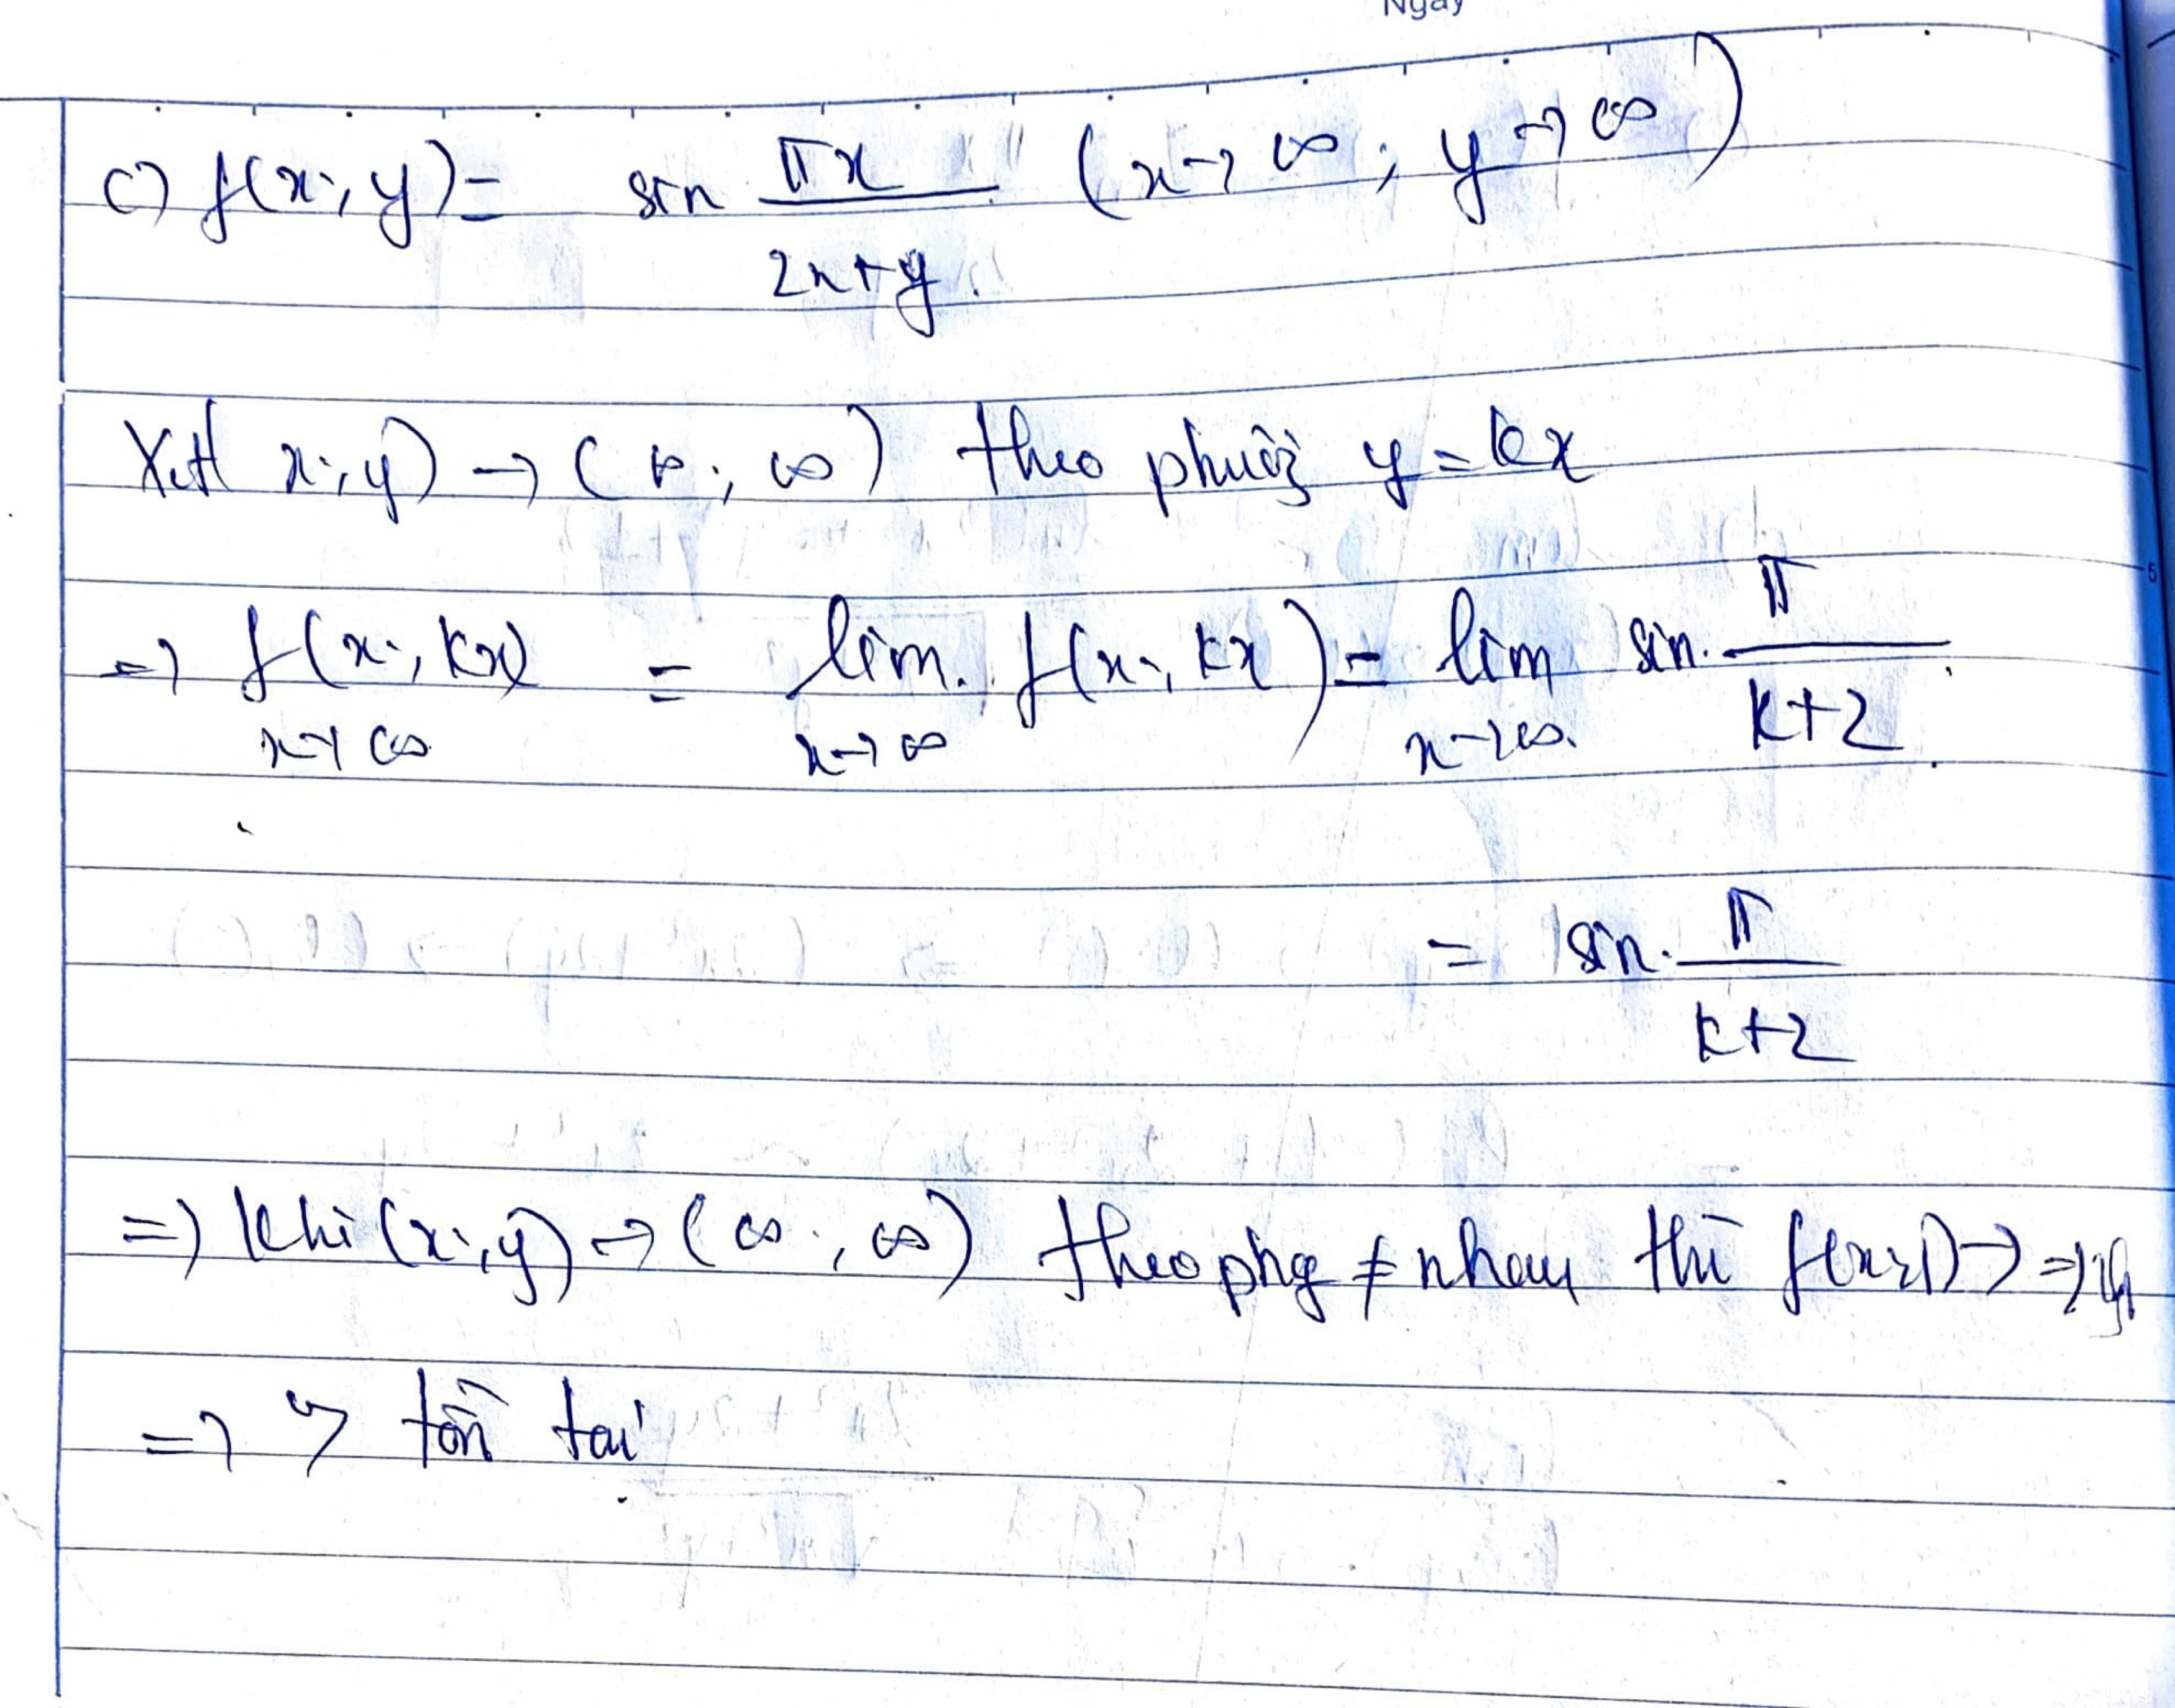 Ngày
c) f(x; y) = sin πx / (2x+y) (x → ∞; y → ∞)
Xét x; y) → (∞; ∞) theo phương y = kx
=> f(x; kx) x→∞ = lim x→∞ f(x; kx) = lim x→∞ sin π/(k+2)
= sin π/(k+2)
=> Khi (x; y) → (∞; ∞) theo phg ≠ nhau thì f(x;y) → =>
=> tồn tại